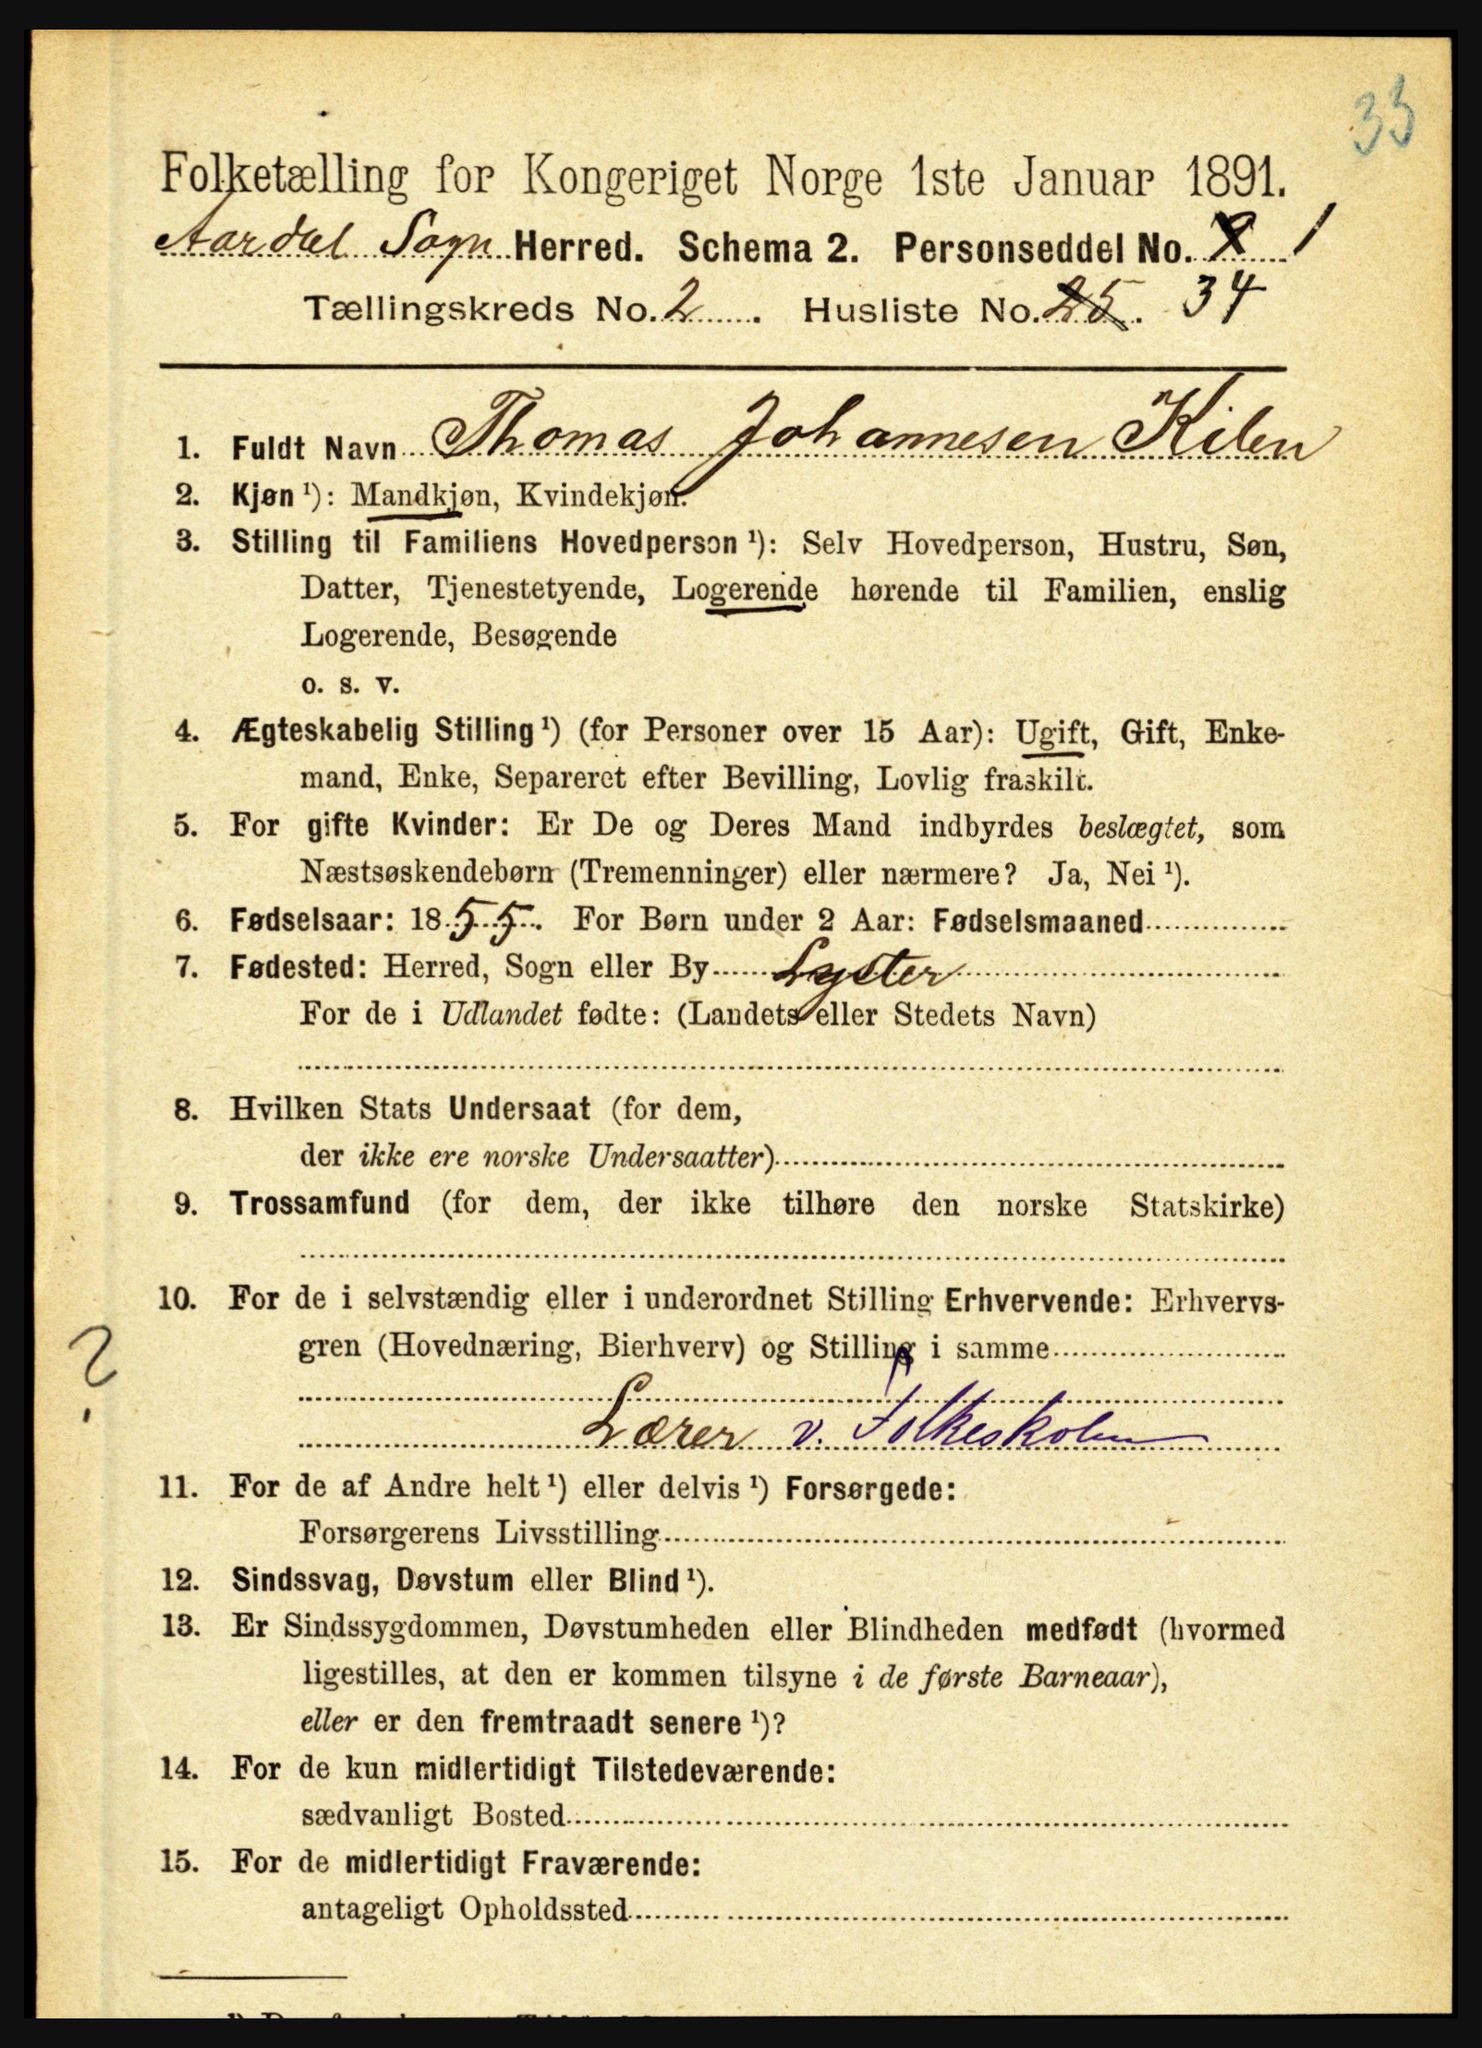 33
Folketælling for Kongeriget Norge 1ste Januar 1891.
Aardal Sogn Herred. Schema 2. Personseddel No. 1
Tællingskreds No. 2 . Husliste No. 25. 34
1. Fuldt Navn Thomas Johannesen Kilen
2. Kjøn ¹): Mandkjøn, Kvindekjøn.
3. Stilling til Familiens Hovedperson ¹): Selv Hovedperson, Hustru, Søn,
Datter, Tjenestetyende, Logerende hørende til Familien, enslig
Logerende, Besøgende
o. s. v.
4. Ægteskabelig Stilling ¹) (for Personer over 15 Aar): Ugift, Gift, Enke-
mand, Enke, Separeret efter Bevilling, Lovlig fraskilt.
5. For gifte Kvinder: Er De og Deres Mand indbyrdes beslægtet, som
Næstsøskendebørn (Tremenninger) eller nærmere? Ja, Nei ¹).
6. Fødselsaar: 1855. For Børn under 2 Aar: Fødselsmaaned
7. Fødested: Herred, Sogn eller By Lyster
For de i Udlandet fødte: (Landets eller Stedets Navn)
8. Hvilken Stats Undersaat (for dem,
der ikke ere norske Undersaatter)
9. Trossamfund (for dem, der ikke tilhøre den norske Statskirke)
10. For de i selvstændig eller i underordnet Stilling Erhvervende: Erhvervs-
gren (Hovednæring, Bierhverv) og Stilling i samme
?
Lærer v. Folkeskolen
11. For de af Andre helt ¹) eller delvis ¹) Forsørgede:
Forsørgerens Livsstilling
12. Sindssvag, Døvstum eller Blind ¹).
13. Er Sindssygdommen, Døvstumheden eller Blindheden medfødt (hvormed
ligestilles, at den er kommen tilsyne i de første Barneaar),
eller er den fremtraadt senere ¹)?
14. For de kun midlertidigt Tilstedeværende:
sædvanligt Bosted
15. For de midlertidigt Fraværende:
antageligt Opholdssted